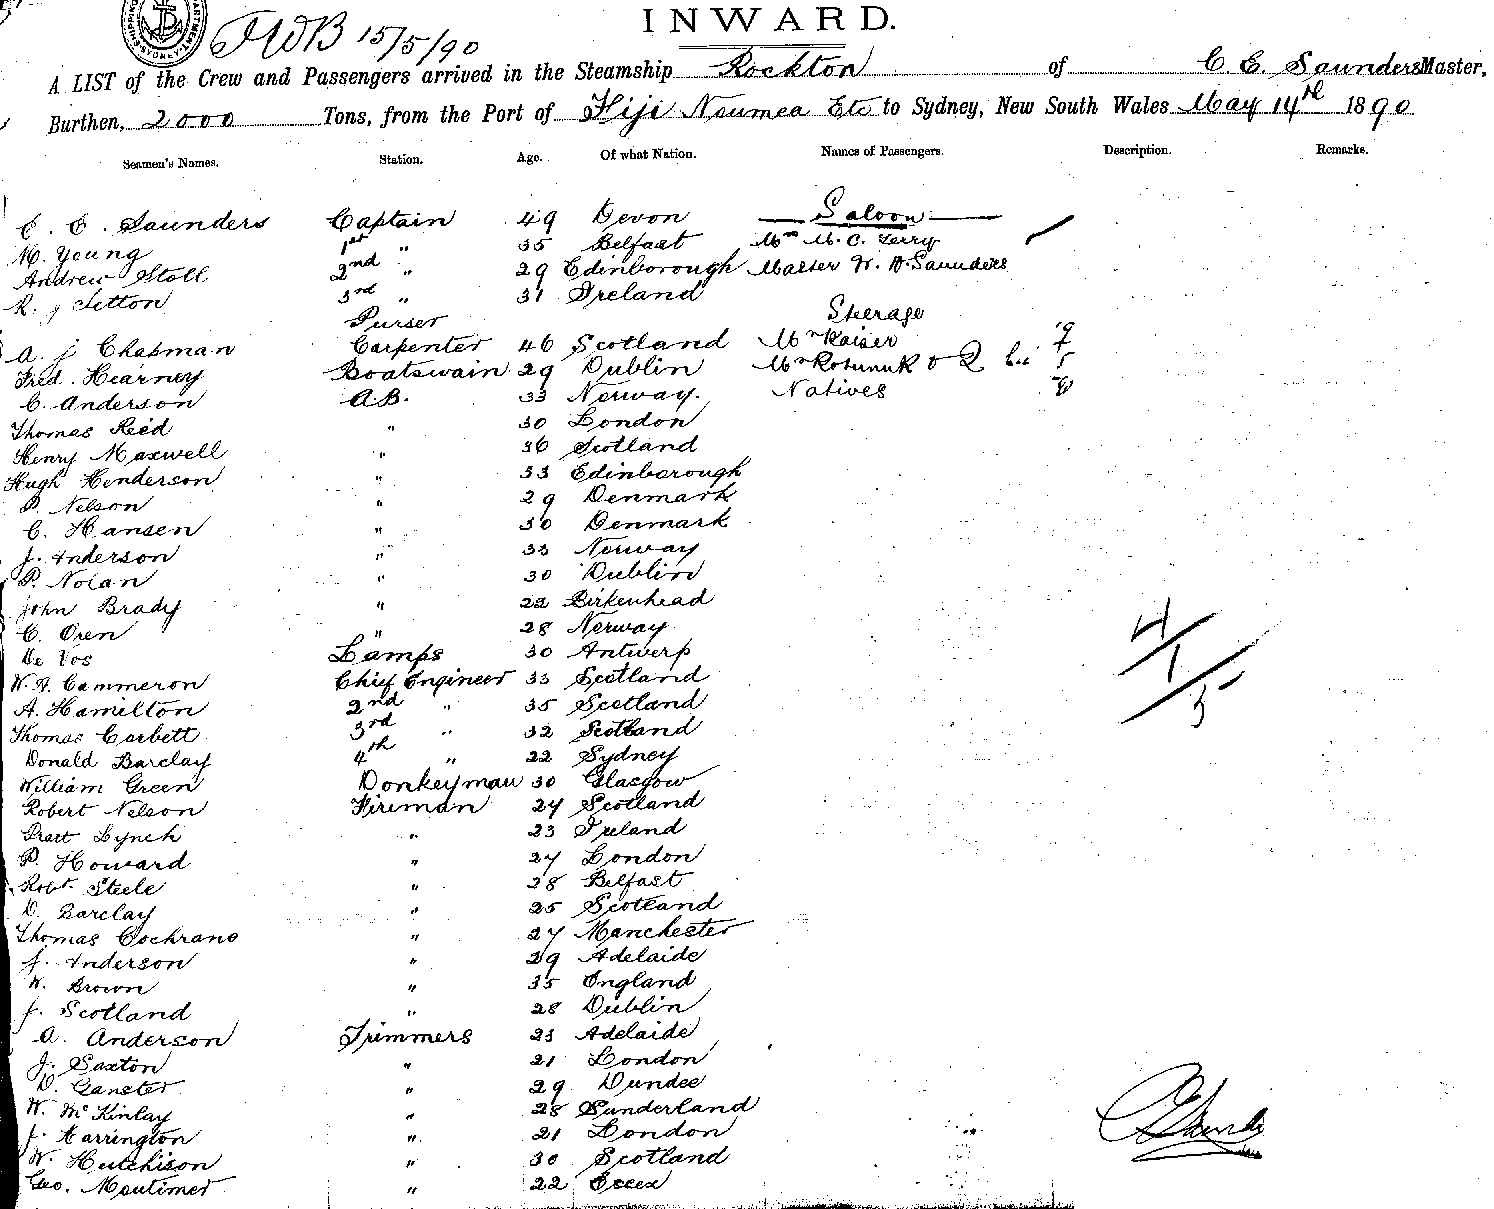 INWARD.
JWB 15/5/90
A LIST of the Crew and Passengers arrived in the Steamship Rockton of C. E. Saunders Master,
Burthen, 2000 Tons, from the Port of Fiji Noumea Etc to Sydney, New South Wales May 14th 1890
Seamen's Names. Station. Age. Of what Nation. Names of Passengers. Description. Remarks.
C. E. Saunders Captain 49 Devon Saloon
M. Young 1st " 35 Belfast Mrs M. C. Terry
Andrew Stoll 2nd " 29 Edinborough Master W. H. Saunders
R. J Tetton 3rd " 31 Ireland
Purser Steerage
A. J Chapman Carpenter 46 Scotland Mr Kaiser
Fred. Hearney Boatswain 29 Dublin Mr
C. Anderson AB. 33 Norway. Natives
Thomas Reid " 30 London
Henry Maxwell " 36 Scotland
Hugh Henderson " 33 Edinborough
P. Nelson " 29 Denmark
C. Hansen " 30 Denmark
J. Anderson " 33 Norway
P. Nolan " 30 Dublin
John Brady " 22 Birkenhead
C. Oren " 28 Norway
De Vos Lamps 30 Antwerp
W. A. Cammeron Chief Engineer 33 Scotland
A. Hamilton 2nd " 35 Scotland
Thomas Corbett 3rd " 32 Scotland
Donald Barclay 4th " 22 Sydney
William Green Donkeyman 30 Glasgow
Robert Nelson Fireman 24 Scotland
Lynch " 23 Ireland
P. Howard " 27 London
Robt Steele " 28 Belfast
D. Barclay " 25 Scotland
Thomas Cochrane " 27 Manchester
J. Anderson " 29 Adelaide
W. Brown " 35 England
J. Scotland " 28 Dublin
A. Anderson Trimmers 23 Adelaide
J. Saxton " 21 London
D. Ganster " 29 Dundee
W. McKinlay " 28 Sunderland
J. Harrington " 21 London
W. Hutchison " 30 Scotland
Geo. Moutimer " 22 Essex